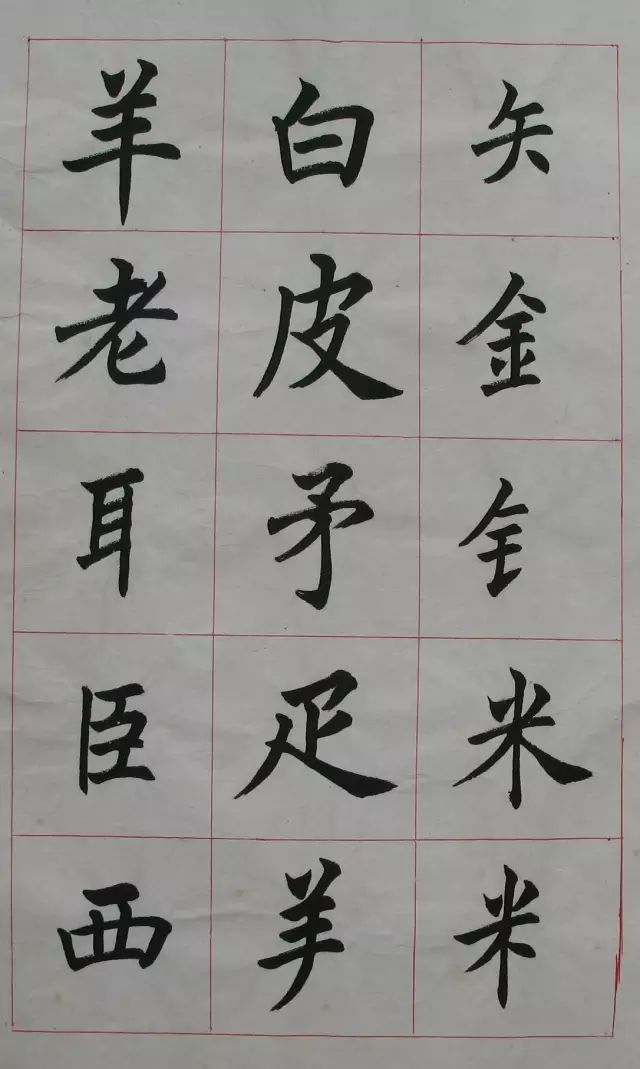 矢金钅米米
白皮矛疋⺶
羊老耳臣西